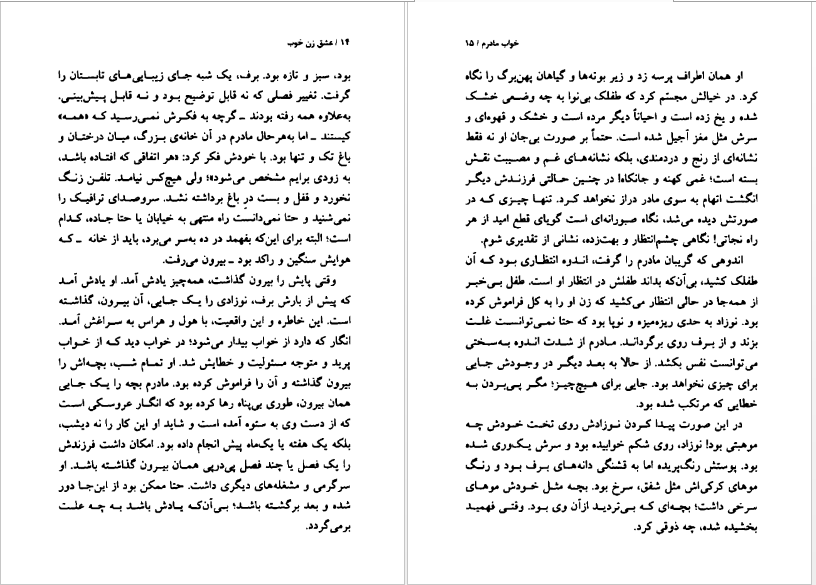 ۱۴ / عشق زن خوب
بود، سبز و تازه بود. برف، یک شبه جای زیبایی‌های تابستان را
گرفت. تغییر فصلی که نه قابل توضیح بود و نه قابل پیش‌بینی.
به‌علاوه همه رفته بودند ـ گرچه به فکرش نمی‌رسید که «همه»
کیستند ـ اما به‌هرحال مادرم در آن خانه‌ی بزرگ، میان درختان و
باغ تک و تنها بود. با خودش فکر کرد: «هر اتفاقی که افتاده باشد،
به زودی برایم مشخص می‌شود»؛ ولی هیچ‌کس نیامد. تلفن زنگ
نخورد و قفل و بست درِ باغ برداشته نشد. سروصدای ترافیک را
نمی‌شنید و حتا نمی‌دانست راه منتهی به خیابان یا حتا جاده، کدام
است؛ البته برای این‌که بفهمد در ده به‌سر می‌برد، باید از خانه ـ که
هوایش سنگین و راکد بود ـ بیرون می‌رفت.
وقتی پایش را بیرون گذاشت، همه‌چیز یادش آمد. او یادش آمد
که پیش از بارش برف، نوزادی را یک جایی، آن بیرون، گذاشته
است. این خاطره و این واقعیت، با هول و هراس به سراغش آمد.
انگار که دارد از خواب بیدار می‌شود؛ در خواب دید که از خواب
پرید و متوجه مسئولیت و خطایش شد. او تمام شب، بچه‌اش را
بیرون گذاشته و آن را فراموش کرده بود. مادرم بچه را یک جایی
همان بیرون، طوری بی‌پناه رها کرده بود که انگار عروسکی است
که از دست وی به ستوه آمده است و شاید او این کار را نه دیشب،
بلکه یک هفته یا یک‌ماه پیش انجام داده بود. امکان داشت فرزندش
را یک فصل یا چند فصل پی‌درپی همان بیرون گذاشته باشد. او
سرگرمی و مشغله‌های دیگری داشت. حتا ممکن بود از این‌جا دور
شده و بعد برگشته باشد؛ بی‌آن‌که یادش باشد به چه علت
برمی‌گردد.
خواب مادرم / ۱۵
او همان اطراف پرسه زد و زیر بوته‌ها و گیاهان پهن‌برگ را نگاه
کرد. در خیالش مجسّم کرد که طفلک بی‌نوا به چه وضعی خشک
شده و یخ زده است و احیاناً دیگر مرده است و خشک و قهوه‌ای و
سرش مثل مغز آجیل شده است. حتماً بر صورت بی‌جان او نه فقط
نشانه‌ای از رنج و دردمندی، بلکه نشانه‌های غم و مصیبت نقش
بسته است؛ غمی کهنه و جانکاه! در چنین حالتی فرزندش دیگر
انگشت اتهام به سوی مادر دراز نخواهد کرد. تنها چیزی که در
صورتش دیده می‌شد، نگاه صبورانه‌ای است گویای قطع امید از هر
راه نجاتی! نگاهی چشم‌انتظار و بهت‌زده، نشانی از تقدیری شوم.
اندوهی که گریبان مادرم را گرفت، اندوه انتظاری بود که آن
طفلک کشید، بی‌آن‌که بداند طفلش در انتظار او است. طفل بی‌خبر
از همه‌جا در حالی انتظار می‌کشید که زن او را به کل فراموش کرده
بود. نوزاد به حدی ریزه‌میزه و نوپا بود که حتا نمی‌توانست غلت
بزند و از برف روی برگرداند. مادرم از شدت اندوه به‌سختی
می‌توانست نفس بکشد. از حالا به بعد دیگر در وجودش جایی
برای چیزی نخواهد بود. جایی برای هیچ‌چیز؛ مگر پی‌بردن به
خطایی که مرتکب شده بود.
در این صورت پیدا کردن نوزادش روی تخت خودش چه
موهبتی بود! نوزاد، روی شکم خوابیده بود و سرش یک‌وری شده
بود. پوستش رنگ‌پریده اما به قشنگی دانه‌های برف بود و رنگ
موهای کرکی‌اش مثل شفق، سرخ بود. بچه مثل خودش موهای
سرخی داشت؛ بچه‌ای که بی‌تردید ازآن وی بود. وقتی فهمید
بخشیده شده، چه ذوقی کرد.